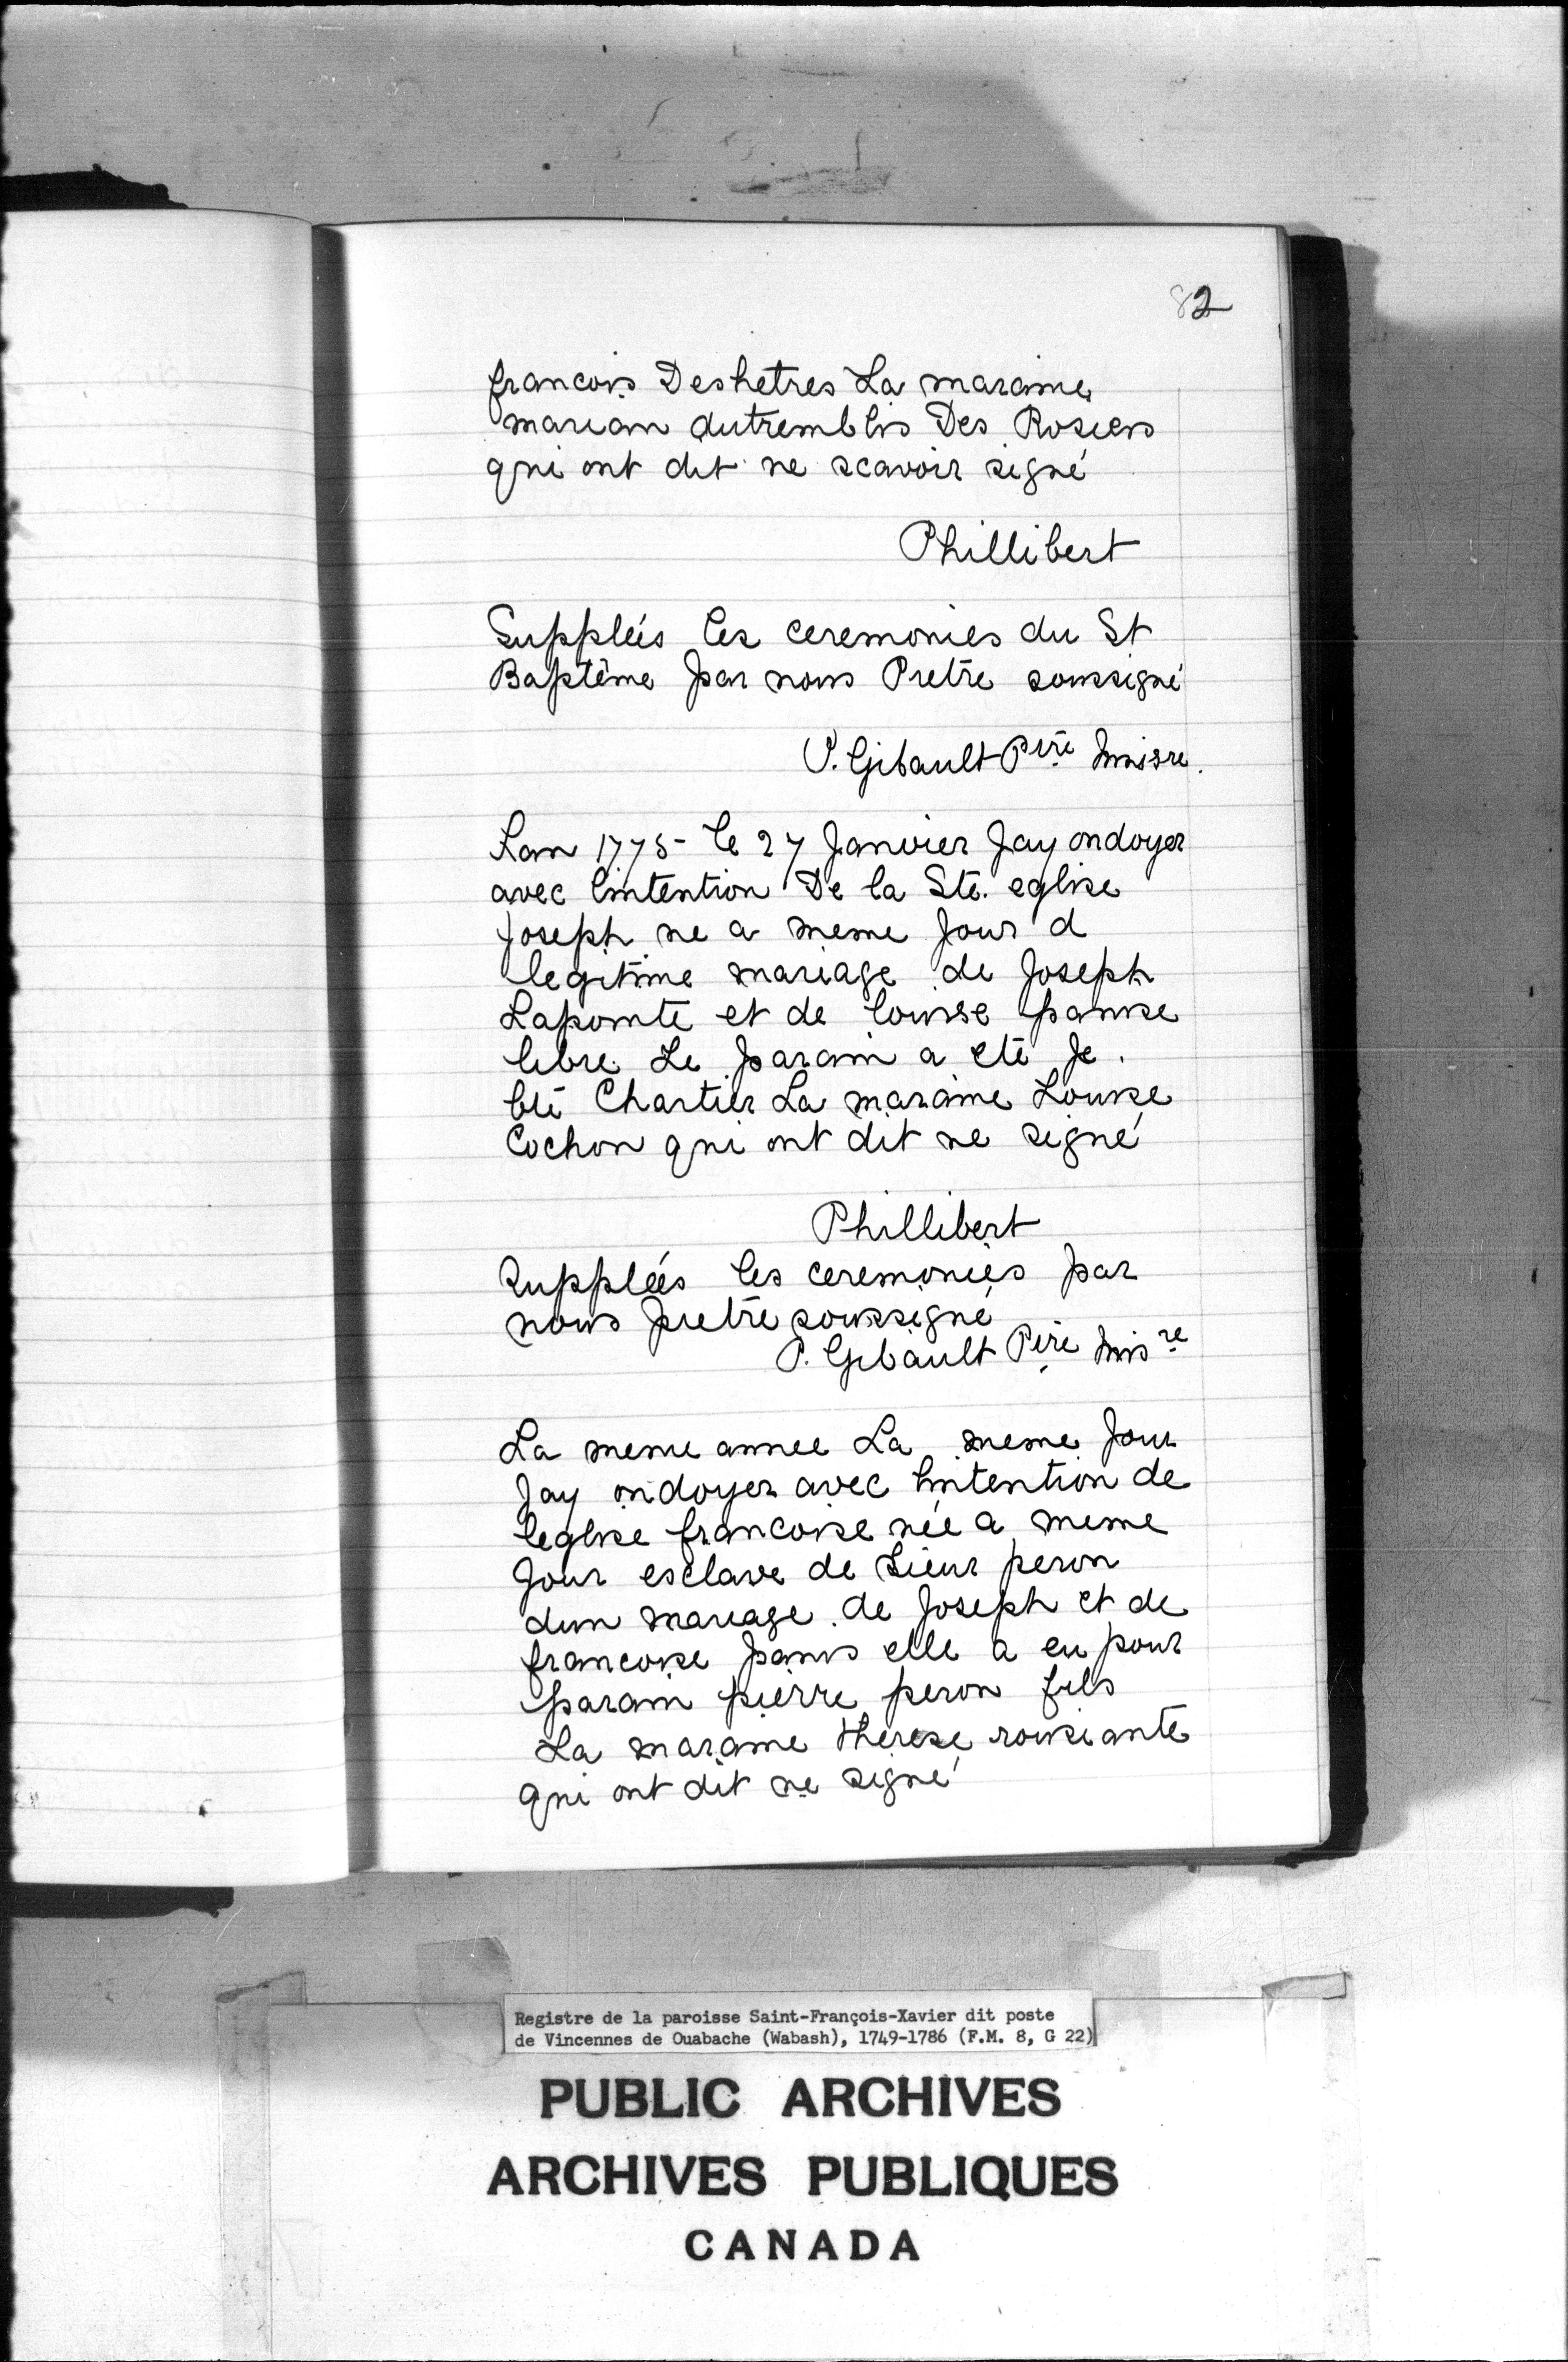 82
francois Deshetres La maraine
mariam dutremblis Des Rosiers
qui ont dit ne scavoir signé
Phillibert
Suppleés les ceremonies du St
Baptême par nous Pretre soussigné
P. Gibault Ptre missre.
Lan 1775 - le 27 Janvier Jay ondoyer
avec lintention De la Ste. eglise
Joseph ne a meme Jour d
legitime mariage de Joseph
Lapointe et de louise panise
libre Le parain a eté Je.
bte Chartier La maraine Louise
Cochon qui ont dit ne signé
Phillibert
Suppleés les ceremonies par
nous pretre soussigné
P. Gibault Ptre Misre
La meme annee La meme Jour
Jay ondoyer avec lintention de
leglise francoise née a meme
Jour esclave de Sieur peron
dun mariage de Joseph et de
francoise panis elle a eu pour
parain pierre peron fils
La maraine therese rousiante
qui ont dit ne signé
Registre de la paroisse Saint-François-Xavier dit poste
de Vincennes de Ouabache (Wabash), 1749-1786 (F.M. 8, G 22)
PUBLIC ARCHIVES
ARCHIVES PUBLIQUES
CANADA